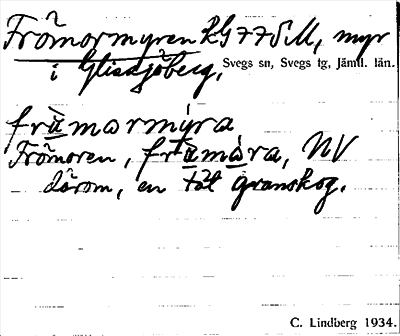 Frömormyren RG77SM, myr
i Glissjöberg, Svegs sn, Svegs tg, Jämtl. län.
fràmormýra
Frömoren, fràmòra, NV
därom, en tät granskog.
C. Lindberg 1934.